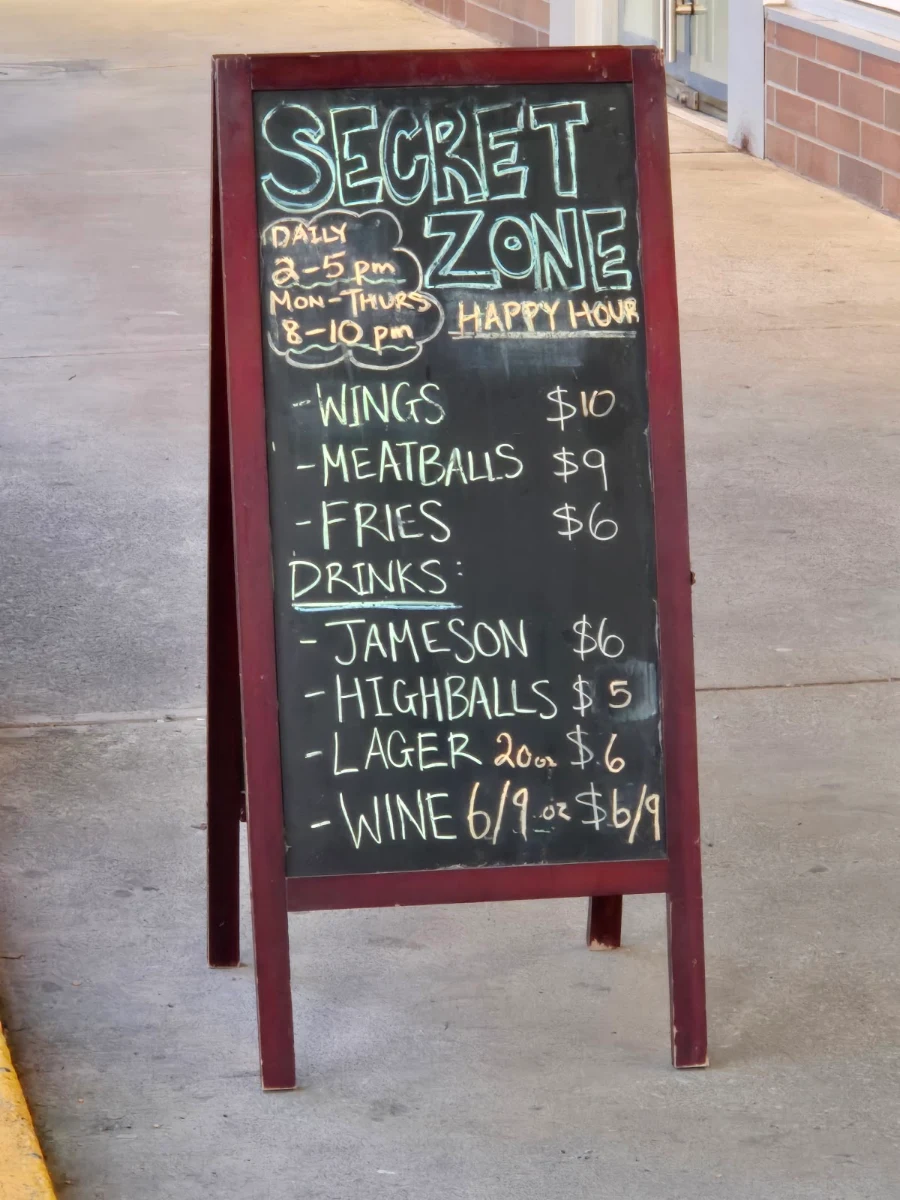 SECRET
ZONE
DAILY
2-5 pm
MON-THURS
8-10 pm
HAPPY HOUR
-WINGS $10
-MEATBALLS $9
-FRIES $6
DRINKS:
-JAMESON $6
-HIGHBALLS $5
-LAGER 20oz $6
-WINE 6/9 oz $6/9